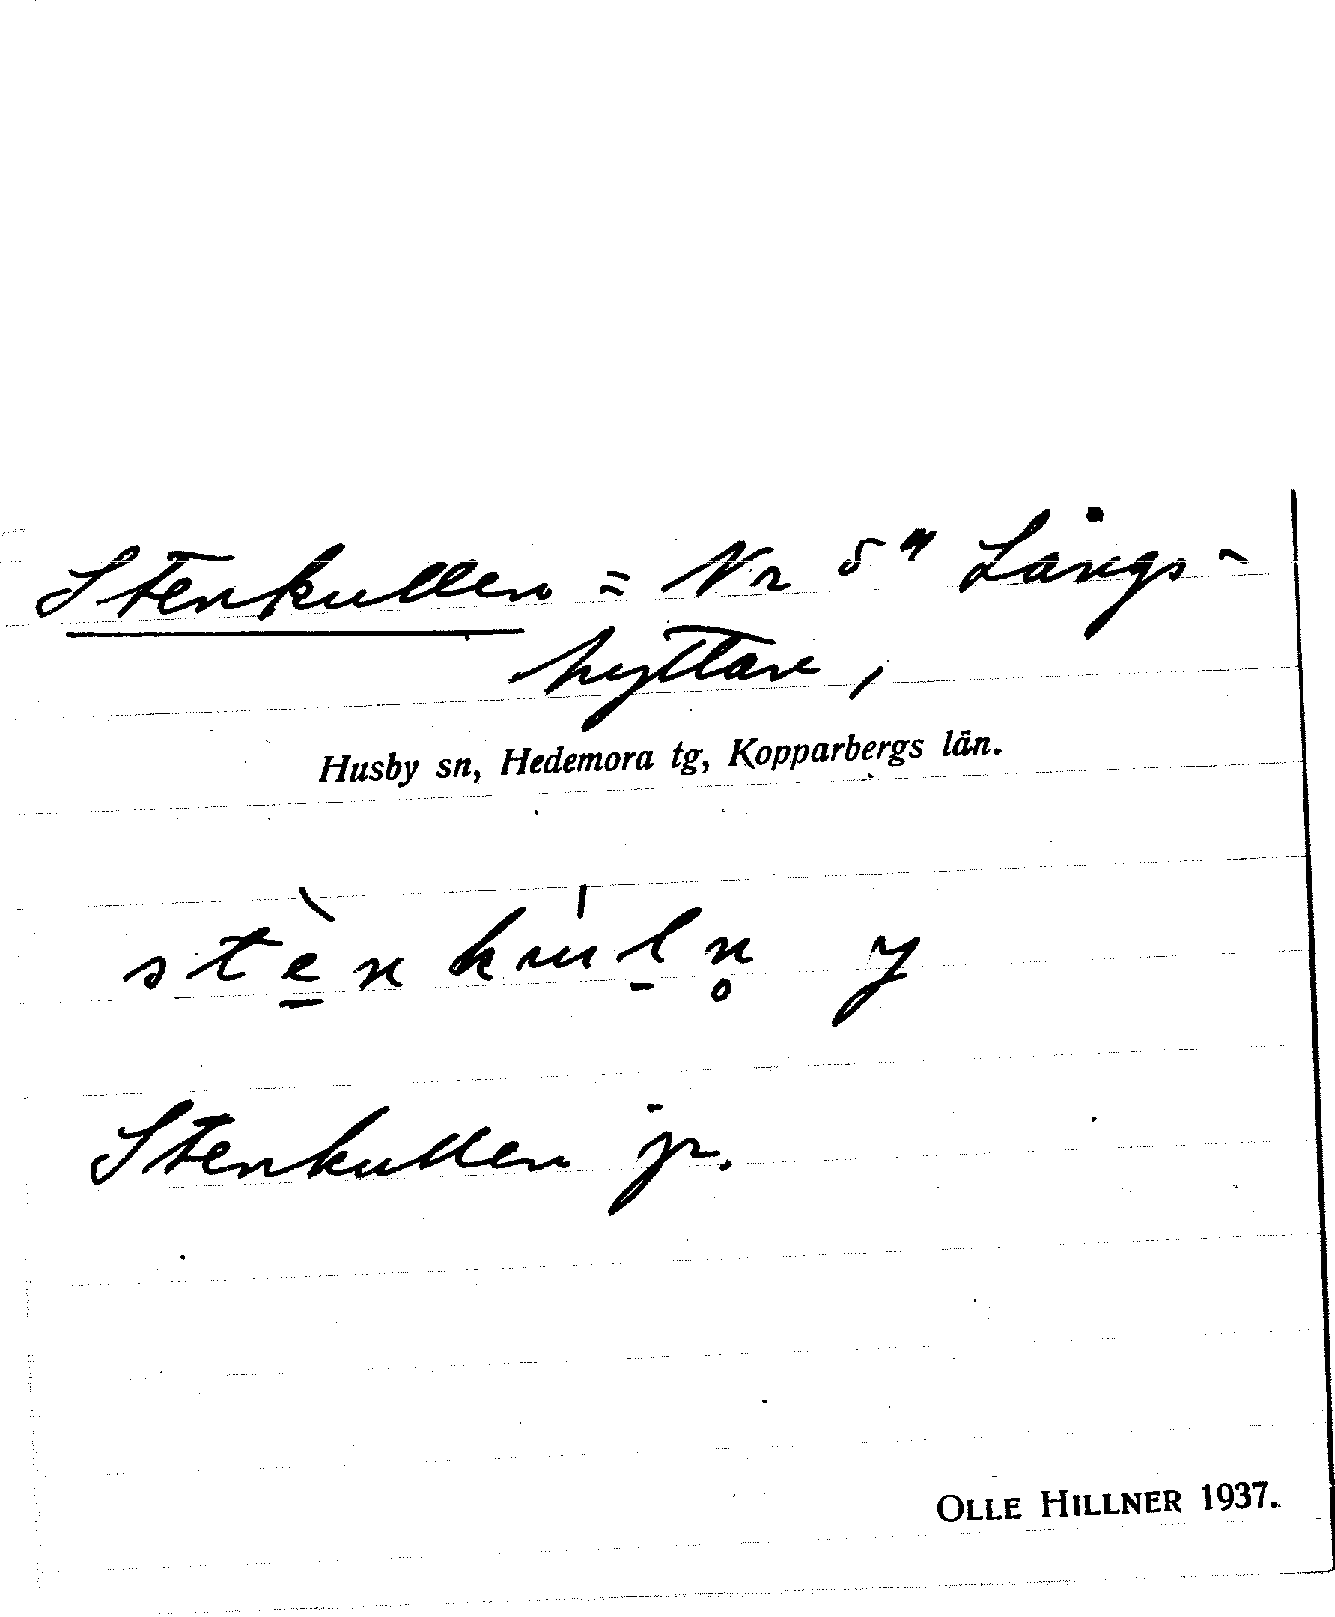 Stenkullen = Nr 5 4 Långs-
hyttan,
Husby sn, Hedemora tg, Kopparbergs län.
Stenkullen jr.
OLLE HILLNER 1937.